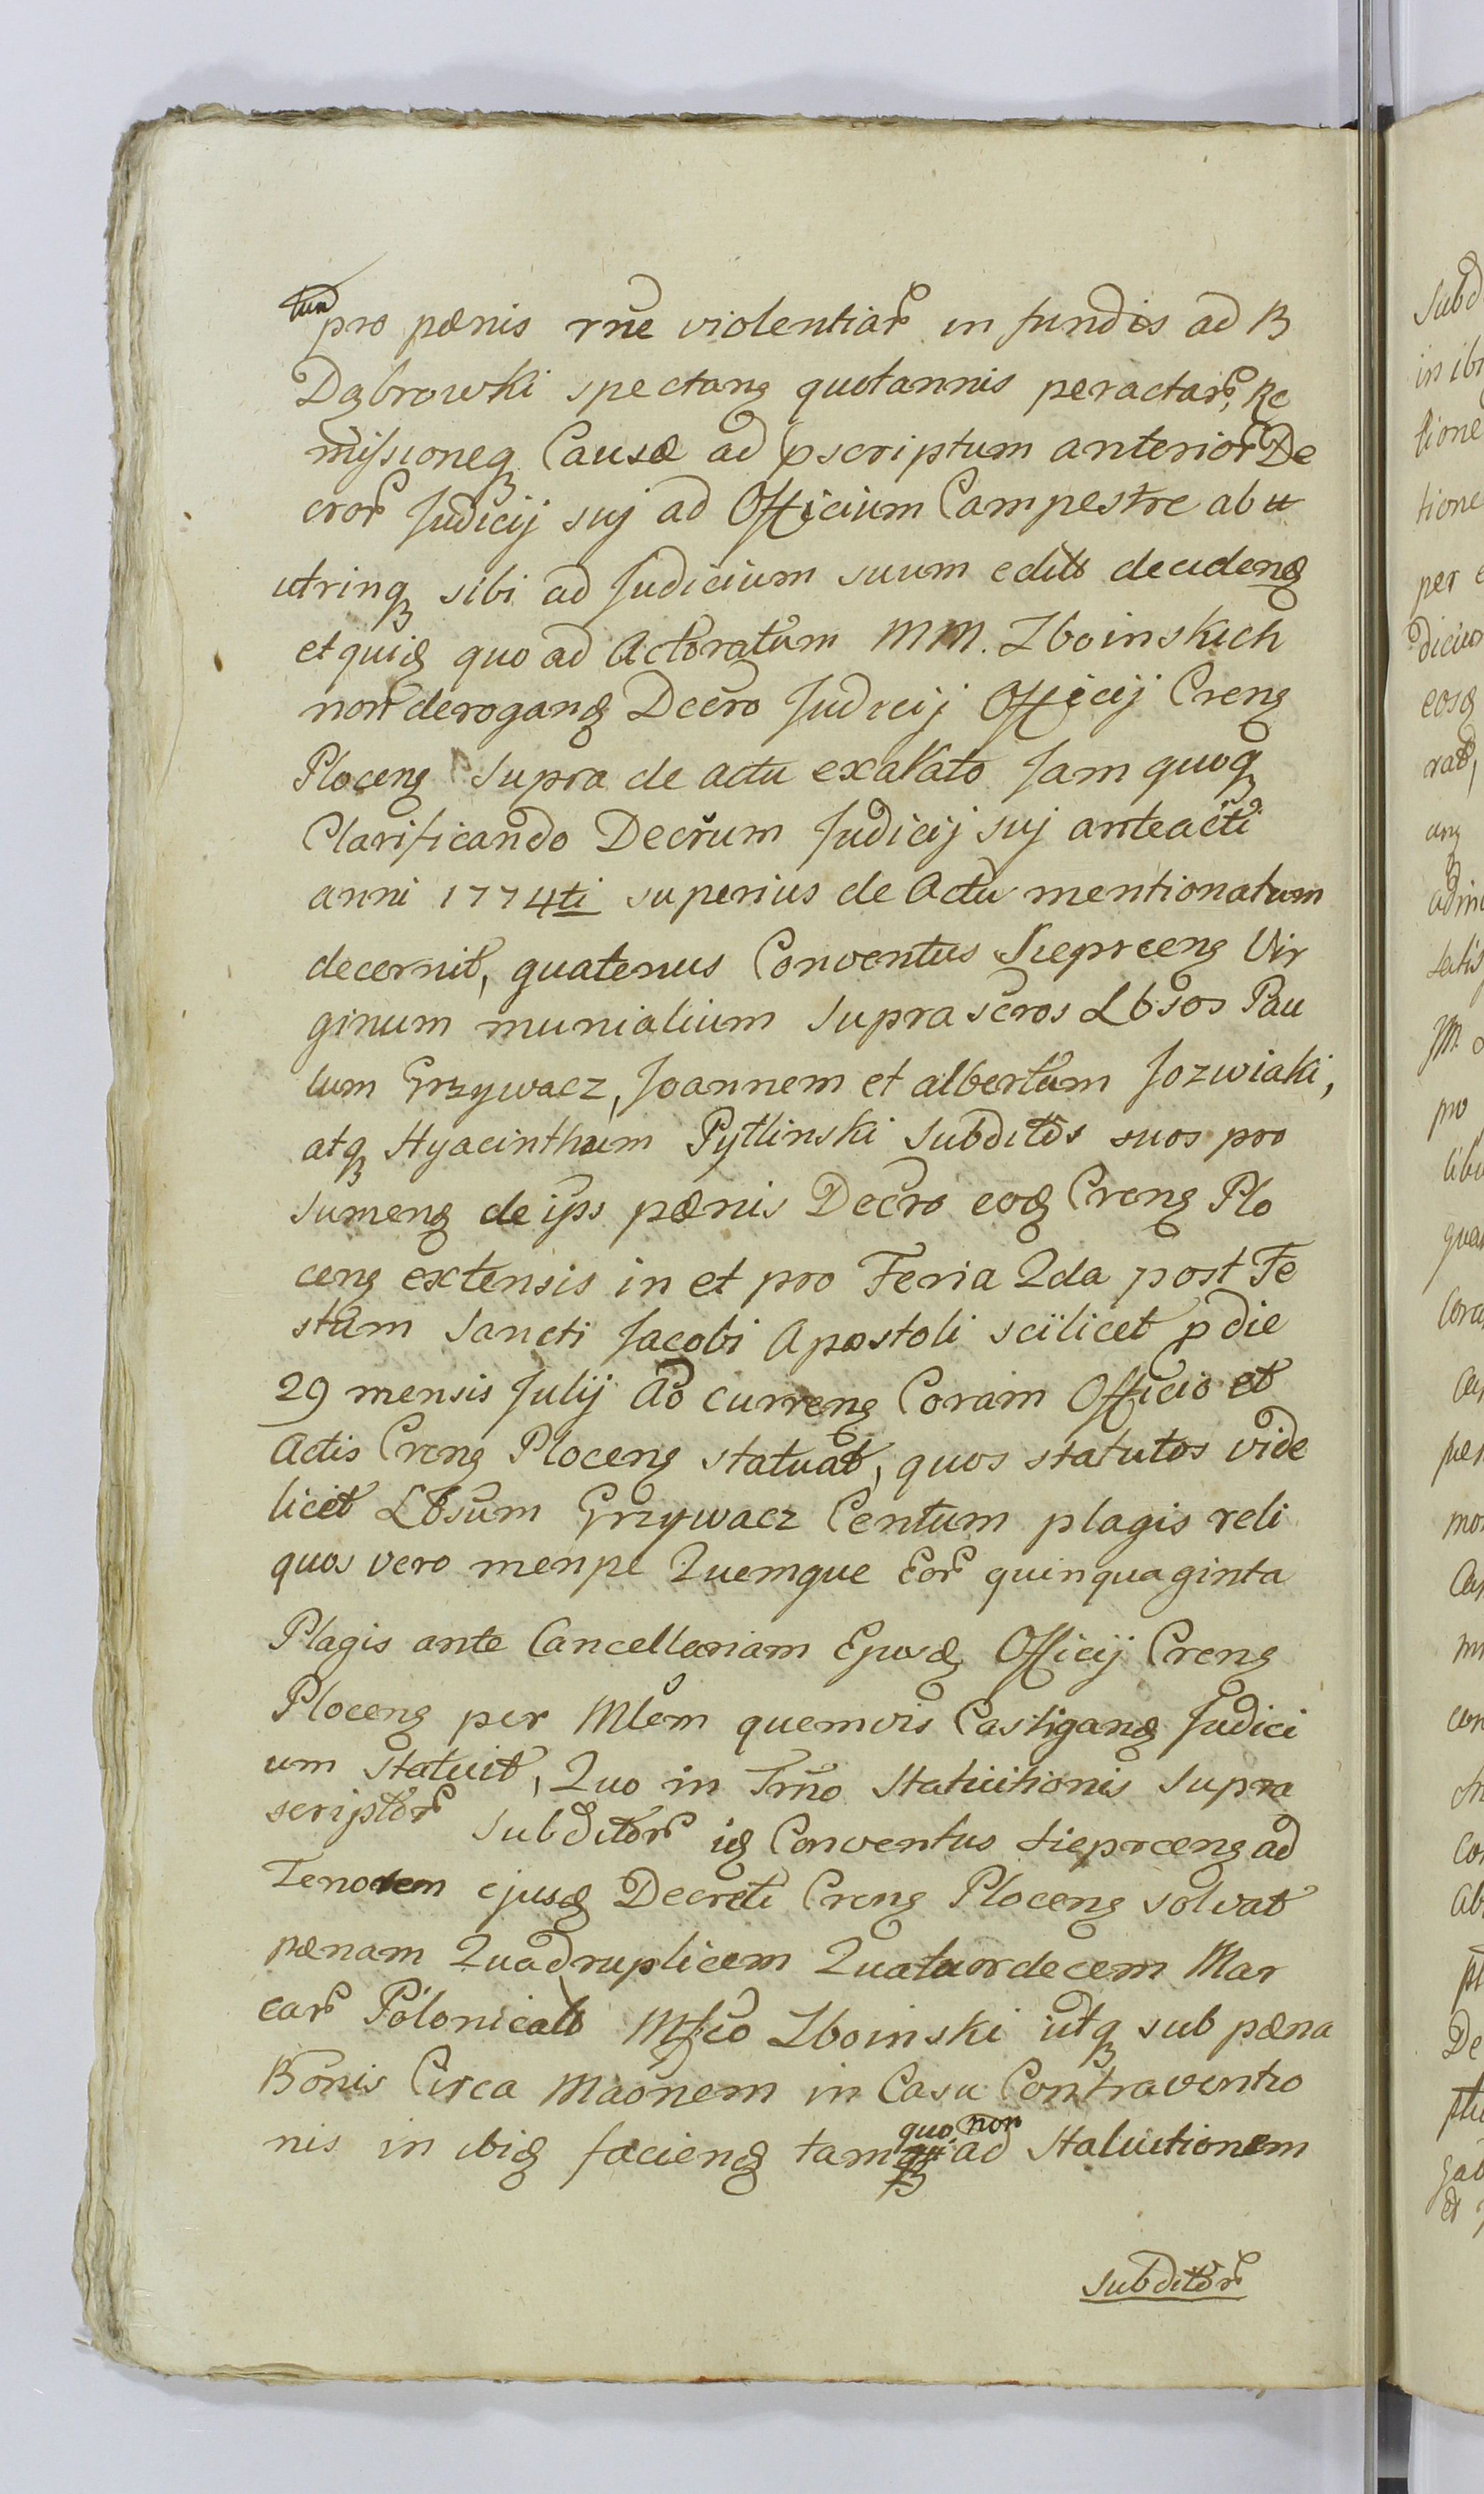 tum pro pænis rñe violentiar in fundis ad B
Dąbrowki spectanꝫ quotannis peractar, Re
missioneqꝫ Causæ ad pscriptum anterior De
cror Judicij suj ad Officium Campestre ab u
utrinqꝫ sibi ad Judicium suum edito decidenꝫ
et quiꝫ quo ad Actoratum MM. Zboinskich
non deroganꝫ Decro Judicij Officij Crenꝫ
Plocenꝫ supra de actu exakato Jam quoqꝫ
Clarificando Decrum Judicij suj anteacti
anni 1774ti superius de Actu mentionatum
decernit, quatenus Conventus Sieprcenꝫ Vir
ginum munialium supra scros Lbsos Pau
lum Grzywacz, Joannem et albertum Jozwiaki,
atqꝫ Hyacinthum Pytlinski Subditos suos pro
sumenꝫ de ijs pænis Decro eoꝫ Crenꝫ Plo
cenꝫ extensis in et pro Feria 2da post Fe
stum Sancti Jacobi Apostoli scilicet p die
29 mensis Julij Ao currenꝫ Coram Officio et
Actis Crenꝫ Plocenꝫ statuat, quos statutos vide
licet Lbsum Grzywacz Centum plagis reli
quos vero menpe Quemque Eor quinquaginta
Plagis ante Cancellariam Ejusꝫ Officij Crenꝫ
Plocenꝫ per Mlem quemvis Castiganꝫ Judici
um statuit, Quo in Trño Statuitionis supra
scriptor subditor iꝫ Conventus Sieprcenꝫ ad
Tenorem ejusꝫ Decreti Crenꝫ Plocenꝫ solvat
pænam Quadruplicem Quatuordecem Mar
car Polonical Mfico Zboinski utqꝫ sub pæna
Bonis Circa Maonem in Casu Contraventio
nis in ibiꝫ facienꝫ tam quo non ad Statuitionem
subditor